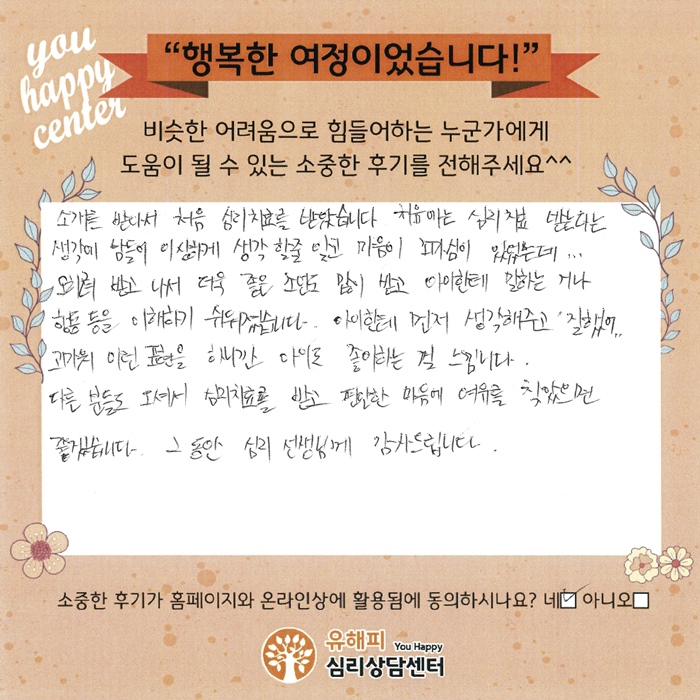 you
happy
center
“행복한 여정이었습니다!”
비슷한 어려움으로 힘들어하는 누군가에게
도움이 될 수 있는 소중한 후기를 전해주세요^^
소개를 받아서 처음 심리치료를 받았습니다 처음에는 심리치료 받는다는
생각에 남들이 이상하게 생각할줄 알고 마음이 조마심이 있었는데...
오히려 받고 나서 더욱 좋은 조언도 많이 받고 아이한테 말하는 거나
행동 등을 이해하기 쉬워졌습니다. 아이한테 먼저 생각해주고 "잘했어"
고마워 이런 표현을 하니깐 아이도 좋아하는 걸 느낍니다.
다른 분들도 오셔서 심리치료를 받고 편안한 마음에 여유를 찾았으면
좋겠습니다. 그 동안 심리 선생님께 감사드립니다.
소중한 후기가 홈페이지와 온라인상에 활용됨에 동의하시나요? 네☑ 아니오□
유해피 You Happy
심리상담센터